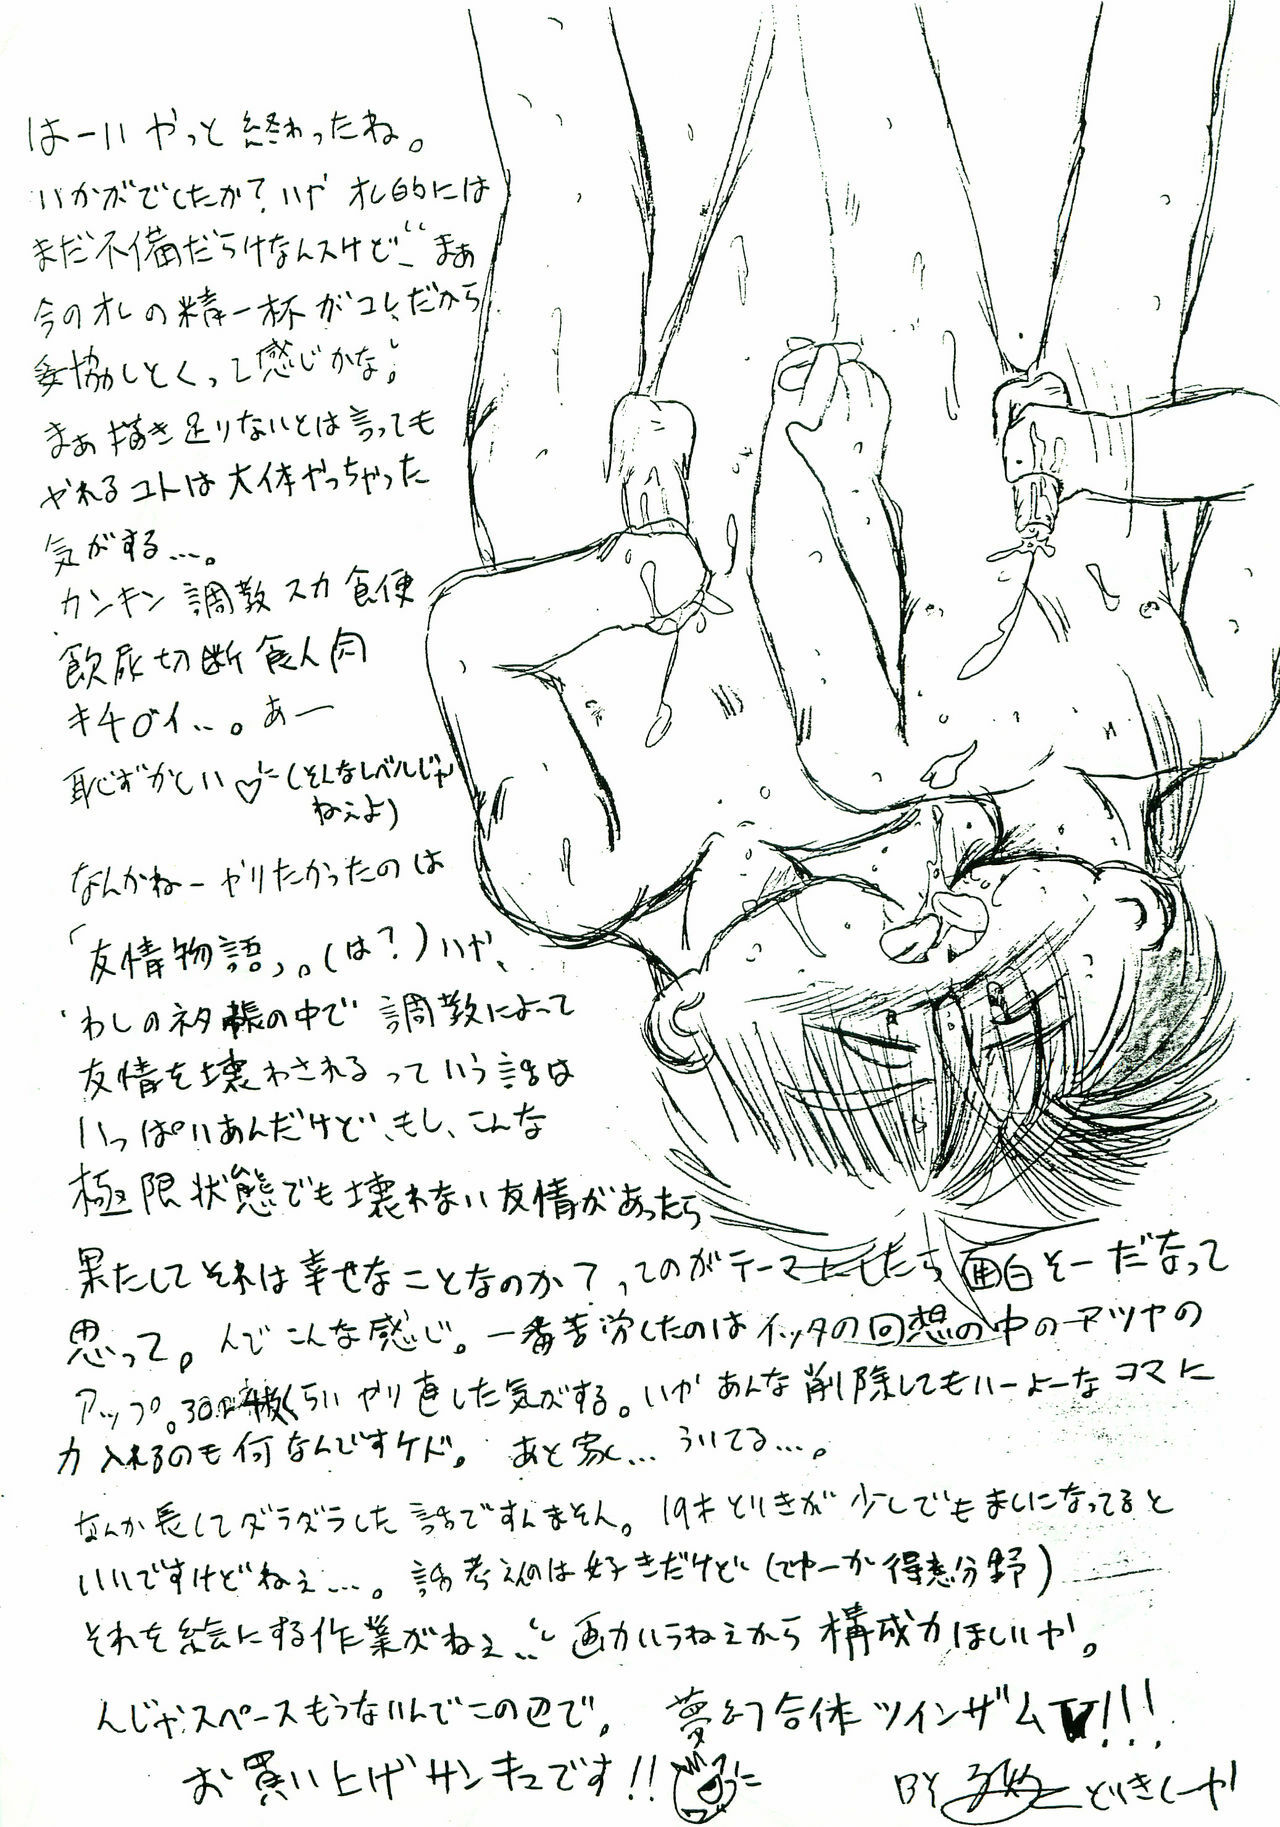 はーい やっと 終わったね。
いかがでしたか? いや オレ的には
まだ不備だらけなんスけど まぁ
今のオレの精一杯がコレだから
妥協しとくって感じかな。
まぁ描き足りないとは言っても
やれるコトは大体やっちゃった
気がする…。
カンキン 調教 スカ 食便
飲尿 切断 食人肉
キチ〇イ…。あー
恥ずかしい♡(そんなレベルじゃ
ねぇよ)
なんかねーやりたかったのは
「友情物語」。(は?)いや、
わしのネタ帳の中で 調教によって
友情を壊わされるっていう話は
いっぱいあんだけど、もし、こんな
極限状態でも壊れない友情があったら
果たしてそれは幸せなことなのか?ってのがテーマにしたら面白そーだなって
思って。んでこんな感じ。一番苦労したのはイッタの回想の中のアツヤの
アップ。30 くらいやり直した気がする。いや あんな削除してもいーよーなコマに
力入れるのも何なんですケド。あと 家… ういてる…。
なんか長してダラダラした話ですんません。19才どりきが少しでもましになってると
いいですけどねぇ…。話考えんのは好きだけど(てゆーか得意分野)
それを絵にする作業がねぇ… 画力いらねぇから構成力ほしいや。
んじゃスペースもうないんでこの辺で。 夢幻合体ツインザムV!!!
お買い上げサンキューです!!
BY どりきしーや